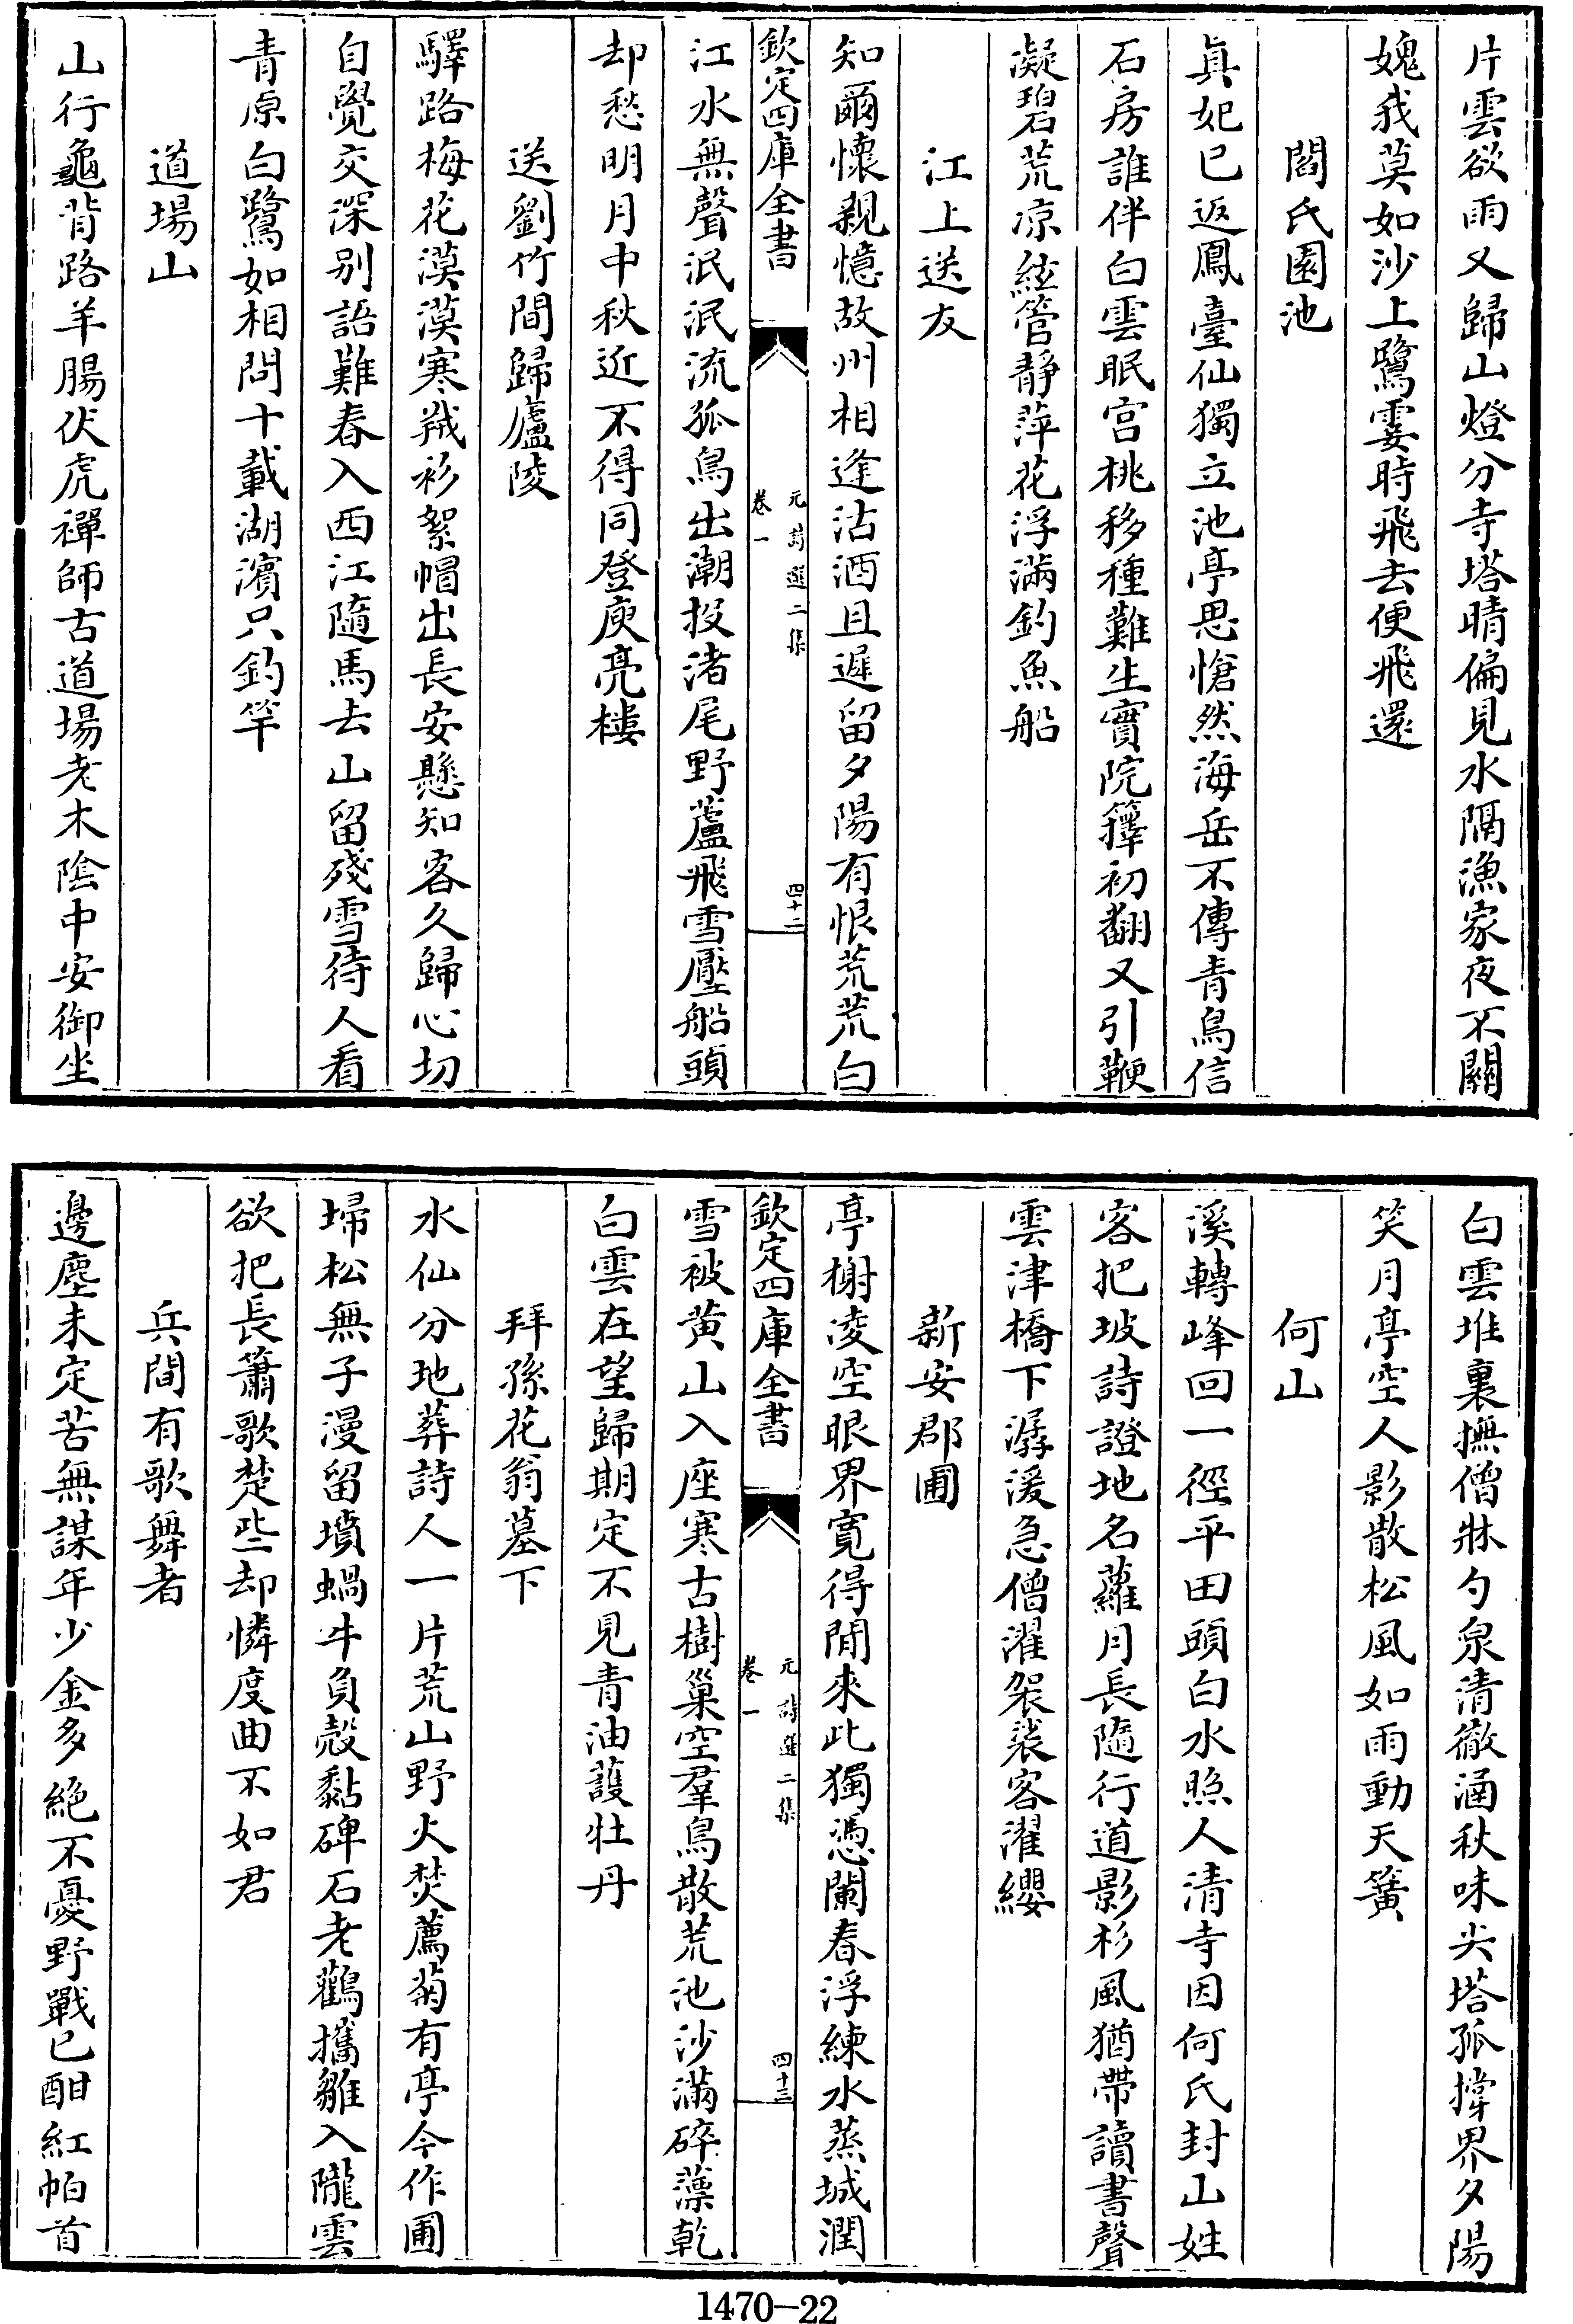 片雲欲雨又歸山燈分寺塔晴偏見水隔漁家夜不關
媿我莫如沙上鷺霎時飛去便飛還
閻氏園池
真妃已返鳳臺仙獨立池亭思愴然海岳不傳青鳥信
石房誰伴白雲眠宫桃移種難生實院籜初翻又引鞭
凝碧荒凉絃管靜萍花浮滿釣魚船
江上送友
知爾懷親憶故州相逢沽酒且遲留夕陽有恨荒荒白
欽定四庫全書
元詩選二集
卷一
四十二
江水無聲泯泯流孤鳥出潮投渚尾野蘆飛雪壓船頭
却愁明月中秋近不得同登庾亮樓
送劉竹間歸廬陵
驛路梅花漠漠寒羢衫絮帽出長安懸知客久歸心切
自覺交深别語難春入西江隨馬去山留殘雪待人看
青原白鷺如相問十載湖濱只釣竿
道場山
山行龜背路羊腸伏虎禪師古道場老木陰中安御坐
白雲堆裏撫僧牀勺泉清徹涵秋味尖塔孤撑界夕陽
笑月亭空人影散松風如雨動天簧
何山
溪轉峰回一徑平田頭白水照人清寺因何氏封山姓
客把坡詩證地名蘿月長隨行道影杉風猶帶讀書聲
雲津橋下潺湲急僧濯袈裟客濯纓
新安郡圃
亭榭凌空眼界寛得閒來此獨憑闌春浮練水蒸城潤
欽定四庫全書
元詩選二集
卷一
四十三
雪被黄山入座寒古樹巢空羣鳥散荒池沙滿碎藻乾
白雲在望歸期定不見青油護牡丹
拜孫花翁墓下
水仙分地葬詩人一片荒山野火焚薦菊有亭今作圃
埽松無子漫留墳蝸牛負殻黏碑石老鸛攜雛入隴雲
欲把長簫歌楚些却憐度曲不如君
兵間有歌舞者
邊塵未定苦無謀年少金多絶不憂野戰已酣紅帕首
1470－22